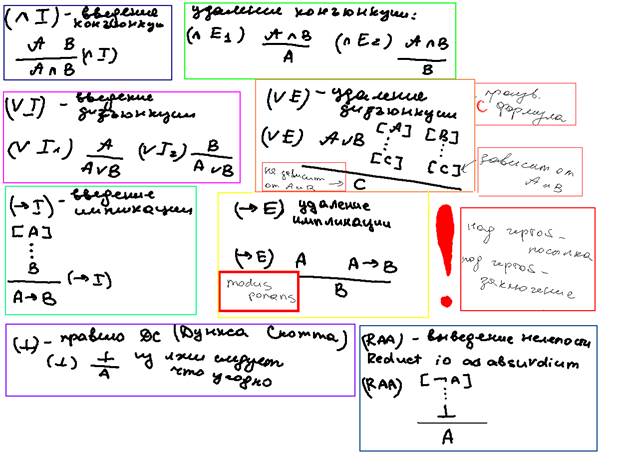 (∧ I) - введение
конъюнкции
A B
(∧ I)
A∧B
удаление конъюнкции:
(∧ E₁) A∧B (∧ E₂) A∧B
A
B
(∨ I) - введение
дизъюнкции
(∨ I₁) A (∨ I₂) B
A∨B A∨B
(∨ E) - удаление
дизъюнкции
(∨ E) A∨B [A] [B]
⋮ ⋮
[C] [C]
не зависит
от A и B →
C
C произв.
формула
зависит от
A и B
(→ I) - введение
импликации
[A]
⋮
B
(→ I)
A→B
(→ E) удаление
импликации
(→ E) A A→B
B
modus
ponens
!
над чертой -
посылка
под чертой -
заключение
(⊥) - правило ДС (Дункса Скотта)
(⊥) ⊥ из лжи следует
A что угодно
(RAA) - выведение нелепости
Reduct io ad absurdium
(RAA) [¬A]
⋮
⊥
A